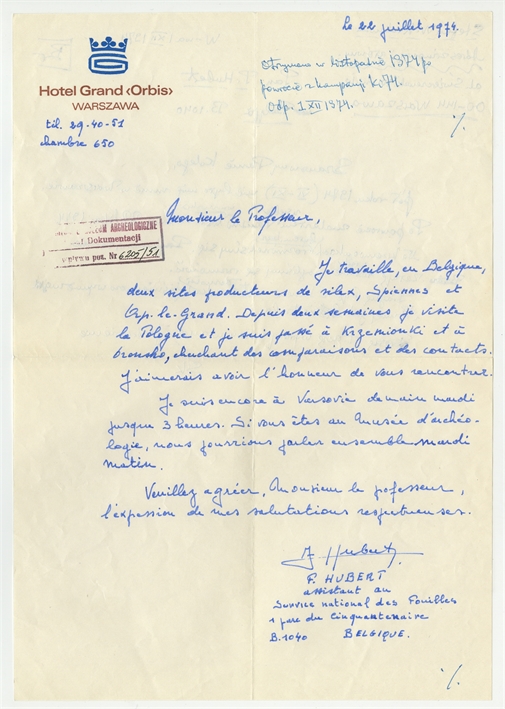 Le 22 juillet 1974.
Otrzymano w listopadzie 1974 po
powrocie z kampanji K. 74.
Odp. 1 XII 1974.
./.
Hotel Grand ‹Orbis›
WARSZAWA
tél. 29-40-51
chambre 650
Monsieur le Professeur,
ARCHEOLOGICZNE
Dokumentacji
poz. Nr 6205/51
Je travaille, en Belgique,
deux sites producteurs de silex, Spiennes et
Orp-le-Grand. Depuis deux semaines je visite
la Pologne et je suis passé à Krzemionki et à
Oronsko, cherchant des comparaisons et des contacts.
J'aimerais avoir l'honneur de vous rencontrer.
Je suis encore à Varsovie demain mardi
jusque 3 heures. Si vous êtes au Musée d'archéo-
logie, nous pourrions parler ensemble mardi
matin.
Veuillez agréer, Monsieur le professeur,
l'expession de mes salutations respectueuses.
F. Hubert
F. HUBERT
assistant au
Service national des Fouilles
1 parc du Cinquantenaire
B.1040 BELGIQUE.
./.